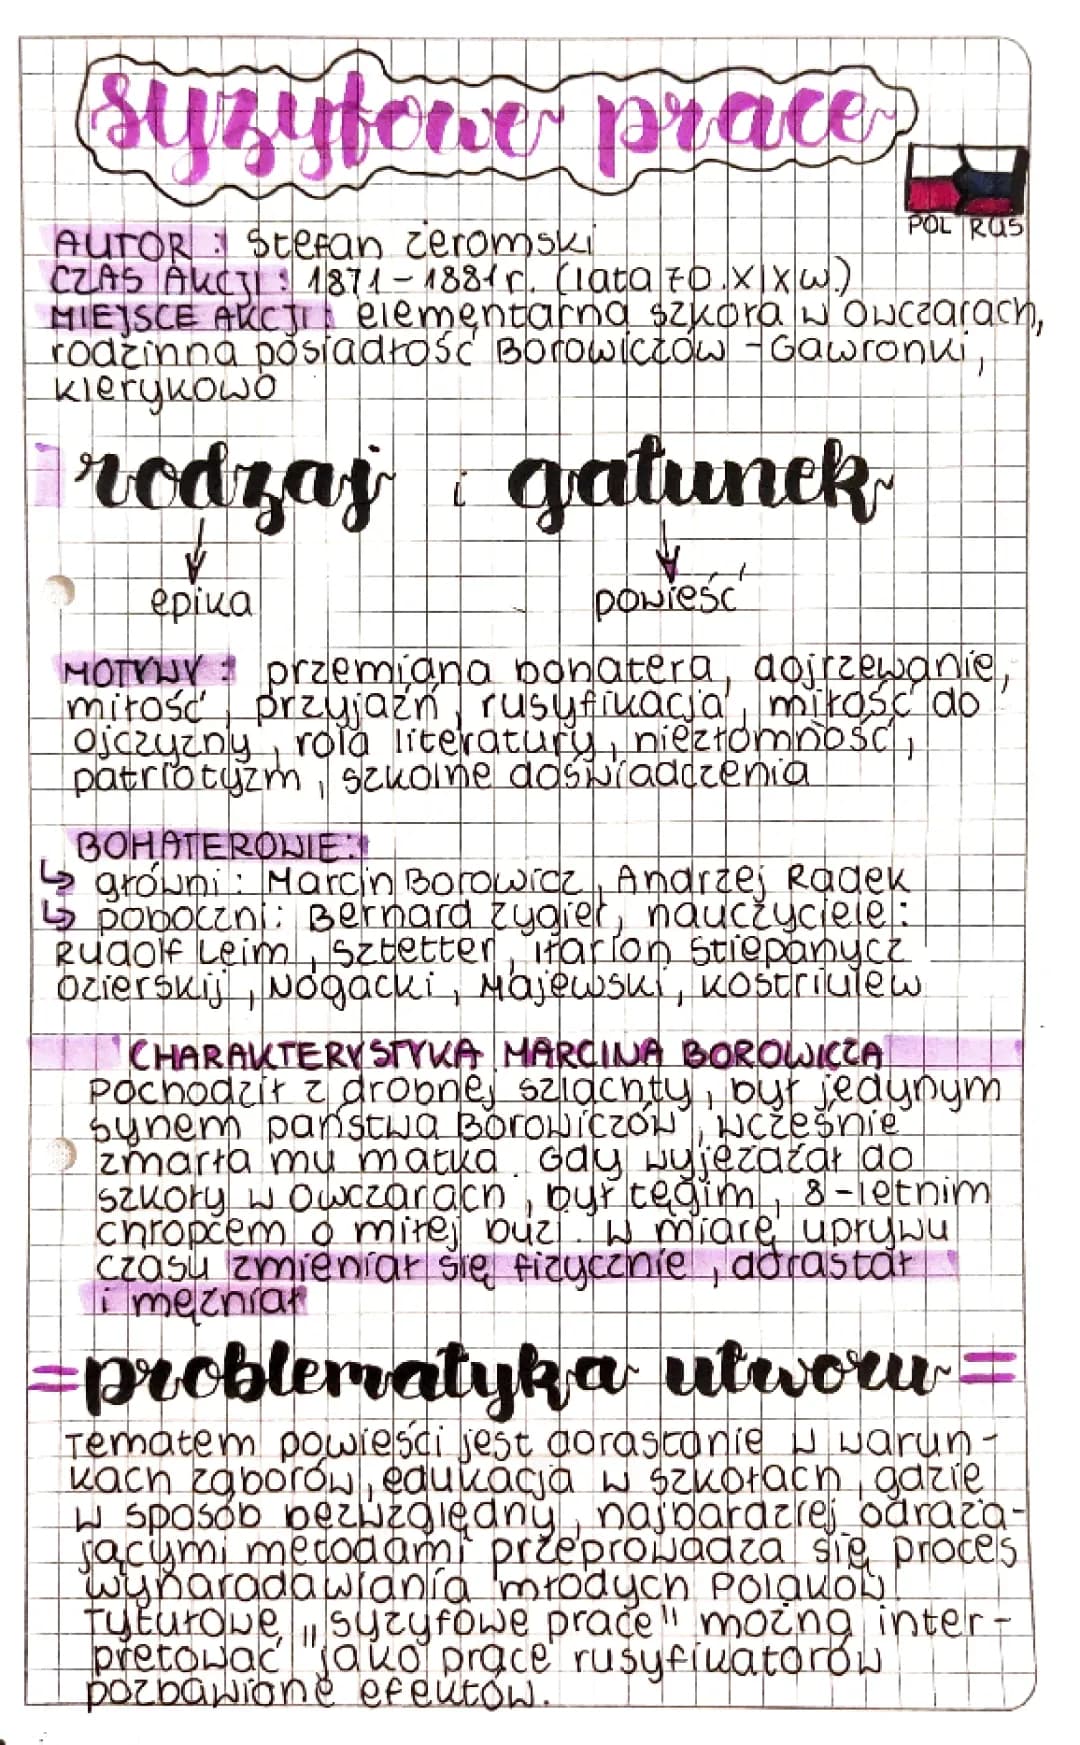 syzyfowe prace
POL RUS
AUTOR: Stefan Żeromski
CZAS AKCJI: 1871-1881r. (lata 70.XIXw.)
MIEJSCE AKCJI: elementarna szkoła w Owczarach,
rodzinna posiadłość Borowiczów - Gawronki,
Klerykowo
rodzaj i gatunek
epika powieść
MOTYWY: przemiana bohatera, dojrzewanie,
miłość, przyjaźń, rusyfikacja, miłość do
ojczyzny, rola literatury, niezłomność,
patriotyzm, szkolne doświadczenia
BOHATEROWIE:
↳ główni: Marcin Borowicz, Andrzej Radek
↳ poboczni: Bernard Zygier, nauczyciele:
Rudolf Leim, Sztetter, Iłarion Stiepanycz
Ozierskij, Nogacki, Majewski, Kostriulew
CHARAKTERYSTYKA MARCINA BOROWICZA
Pochodził z drobnej szlachty, był jedynym
synem państwa Borowiczów, wcześnie
zmarła mu matka. Gdy wyjeżdżał do
szkoły w Owczarach, był tęgim, 8-letnim
chłopcem o miłej buzi. W miarę upływu
czasu zmieniał się fizycznie, dorastał
i mężniał
=problematyka utworu=
Tematem powieści jest dorastanie w warun-
kach zaborów, edukacja w szkołach, gdzie
w sposób bezwzględny, najbardziej odraża-
jącymi metodami przeprowadza się proces
wynaradawiania młodych Polaków.
Tytułowe "syzyfowe prace" można inter-
pretować jako prace rusyfikatorów
pozbawione efektów.